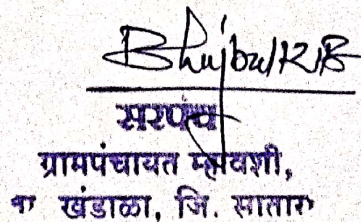 Bhujbal R B
सरपंच
ग्रामपंचायत म्हावशी,
ता खंडाळा, जि. सातारा